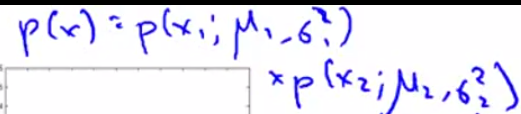 p(x) = p(x₁; μ₁, σ₁²)
× p(x₂; μ₂, σ₂²)